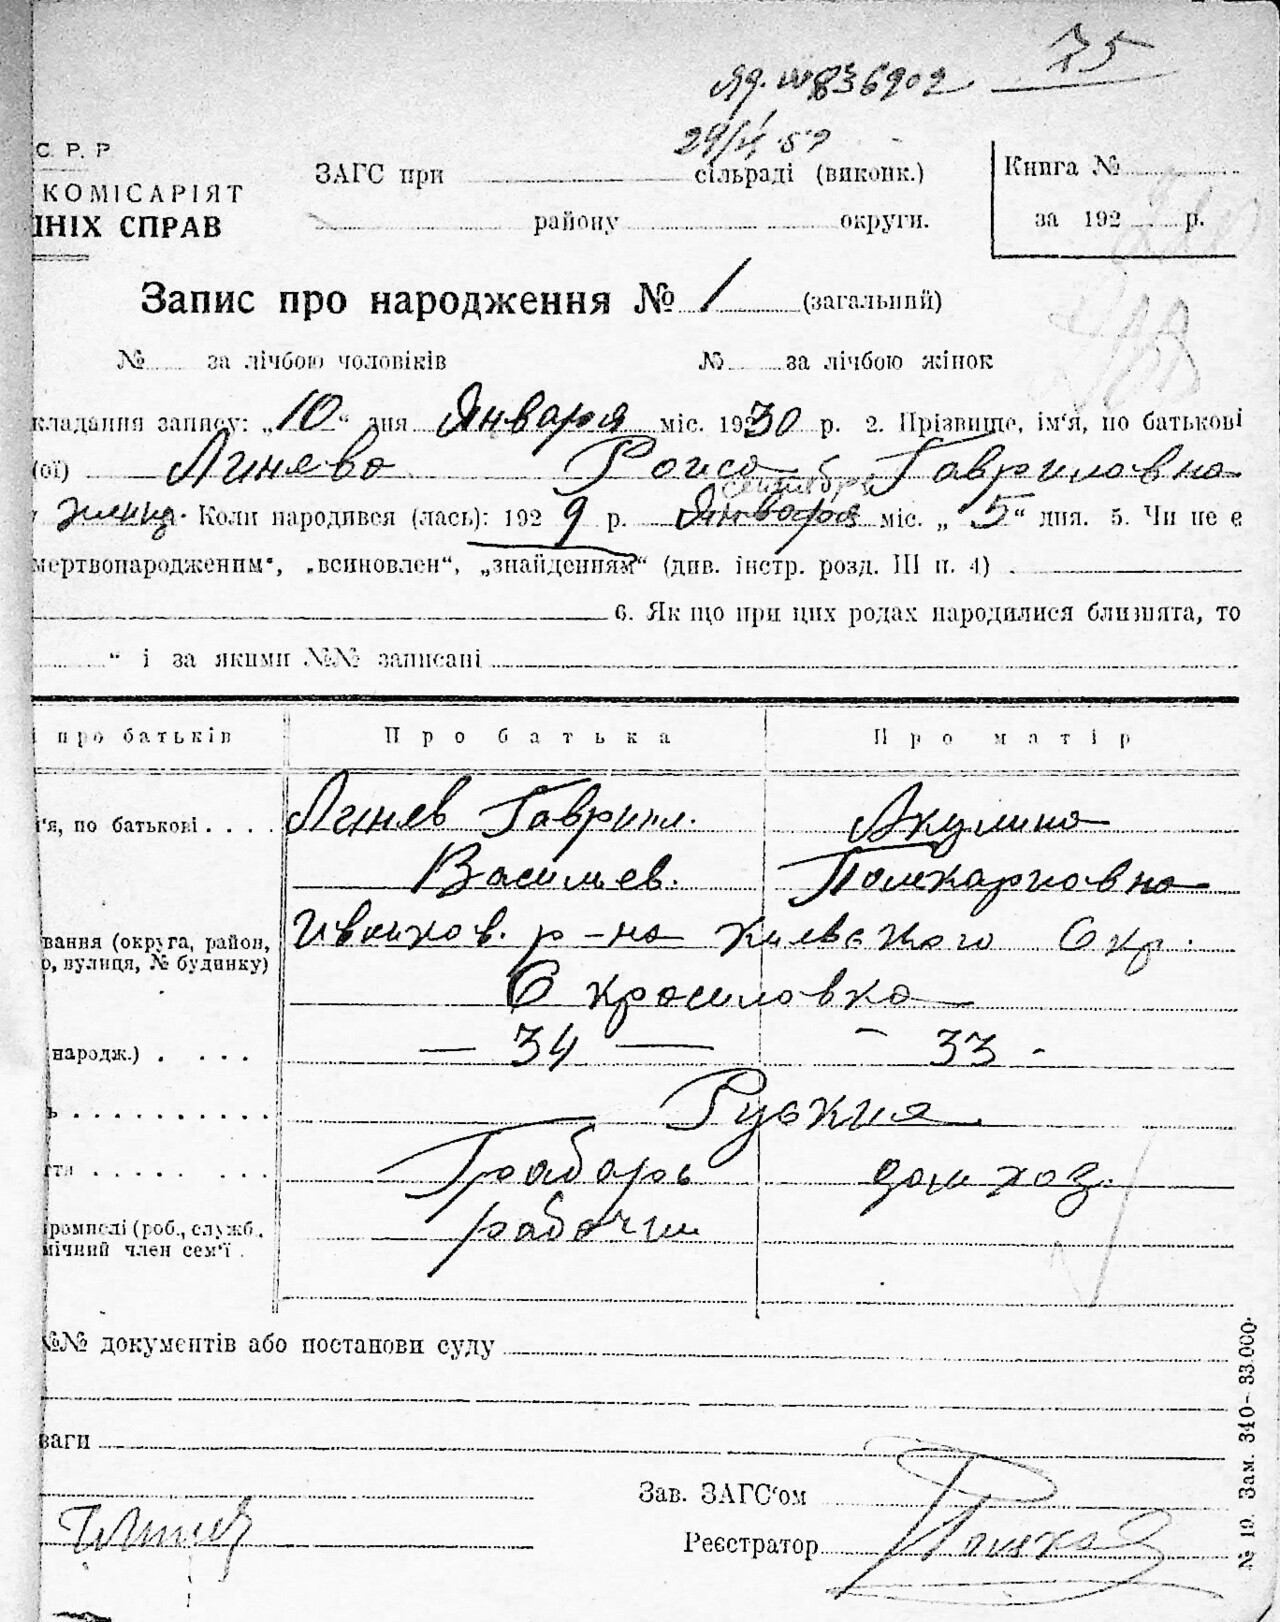 75
№836902
29/4 57
С. Р. Р
КОМІСАРІЯТ
ШНІХ СПРАВ
ЗАГС при сільраді (виконк.)
району округи.
Книга №
за 192 р.
Запис про народження № 1 (загальний)
№ за лічбою чоловіків № за лічбою жінок
кладання запису: „10“ дня Января міс. 1930 р. 2. Прізвище, ім'я, по батькові
(ої) Линева Раиса Гавриловна
сентября
женщ. Коли народився (лась): 1929 р. Января міс. „5“ дня. 5. Чи не є
мертвонародженим“, „всиновлен“, „знайденням“ (див. інстр. розд. III п. 4)
6. Як що при цих родах народилися близнята, то
“ і за якими №№ записані
і про батьків Про батька Про матір
'я, по батькові Линев Гаврил. Акулина
Васильев. Поликарповна
вання (округа, район, р-на Киевского Окр.
о, вулиця, № будинку)
С Красиловка
народж.) — 34 — – 33 -
ь Руские
ття Грабарь дом хоз.
промислі (роб., служб.
рабочий
мічний член сем'ї
№№ документів або постанови суду
ваги
Зав. ЗАГС'ом
Реєстратор
№ 19. Зам. 340–33.000.